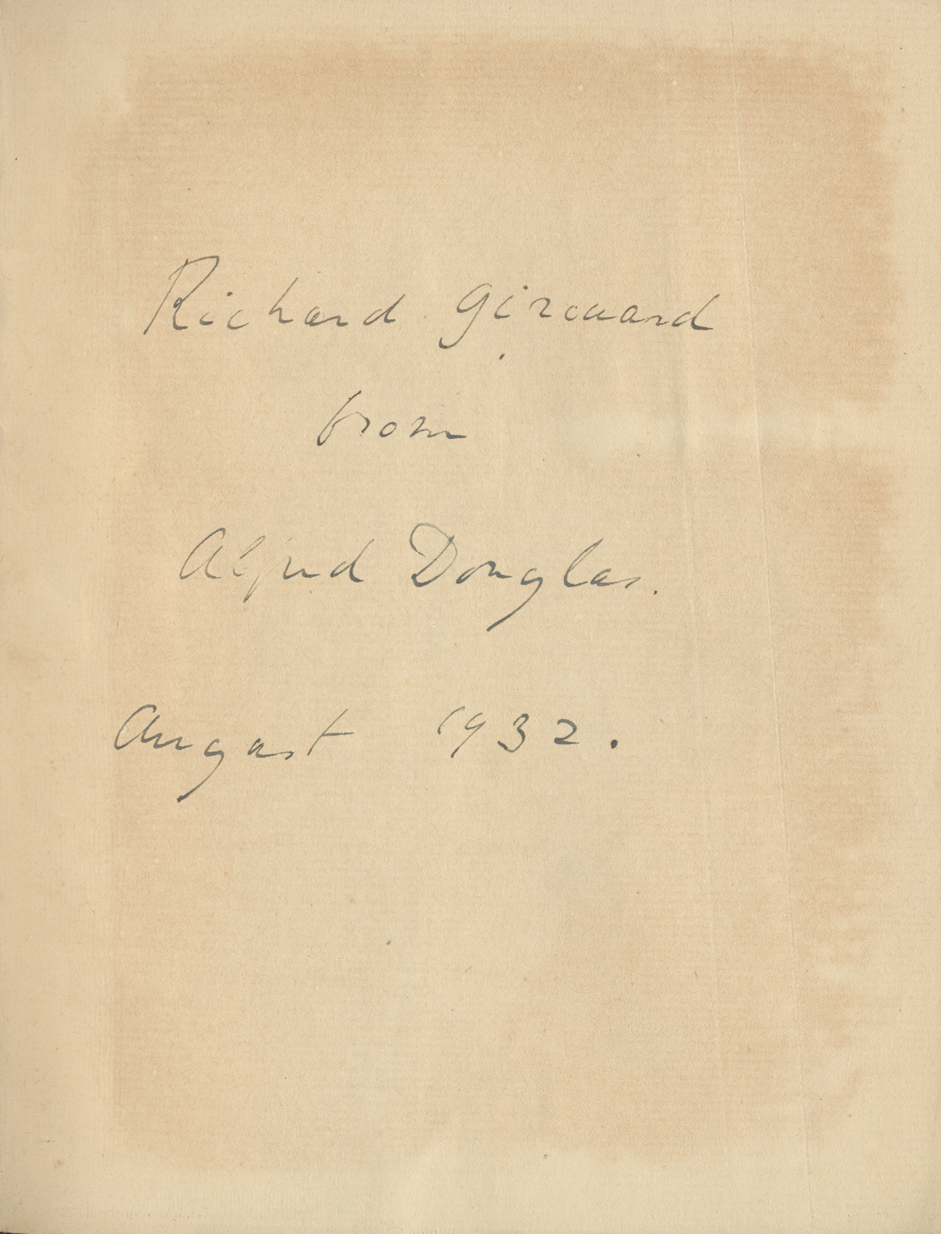 Richard Girouard
from
Alfred Douglas.
August 1932.